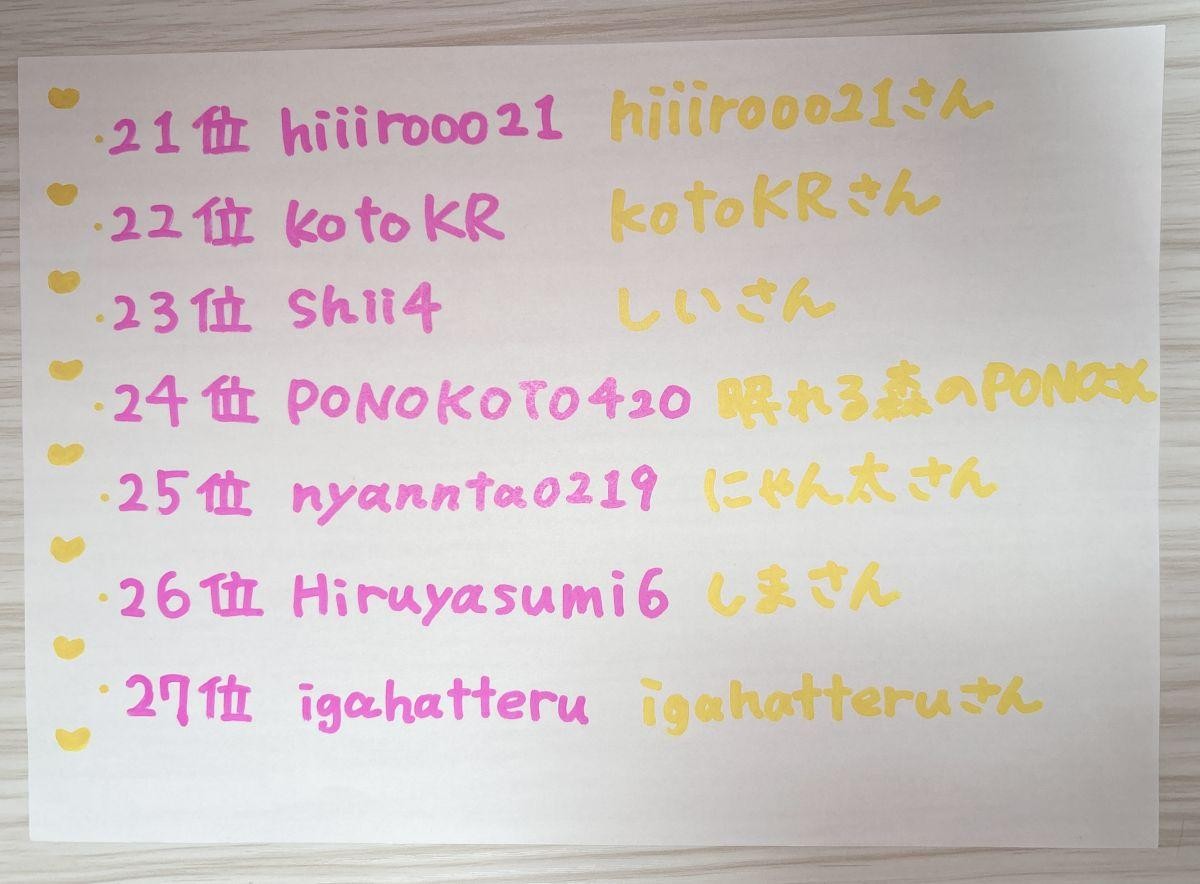 ・21位 hiiirooo21 hiiirooo21さん
・22位 kotoKR kotoKRさん
・23位 shii4 しいさん
・24位 PONOKOTO420 眠れる森のPONOさん
・25位 nyanntao219 にゃん太さん
・26位 Hiruyasumi6 しまさん
・27位 igahatteru igahatteruさん